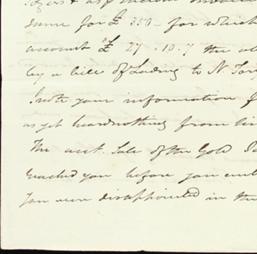 some for £ 350 - for which
account £ 27.10.7 the
by a bill of Lading to N.
note your information
as yet heard nothing from
The acct. Sale of the Gold
reached you before you
You were disappointed in the